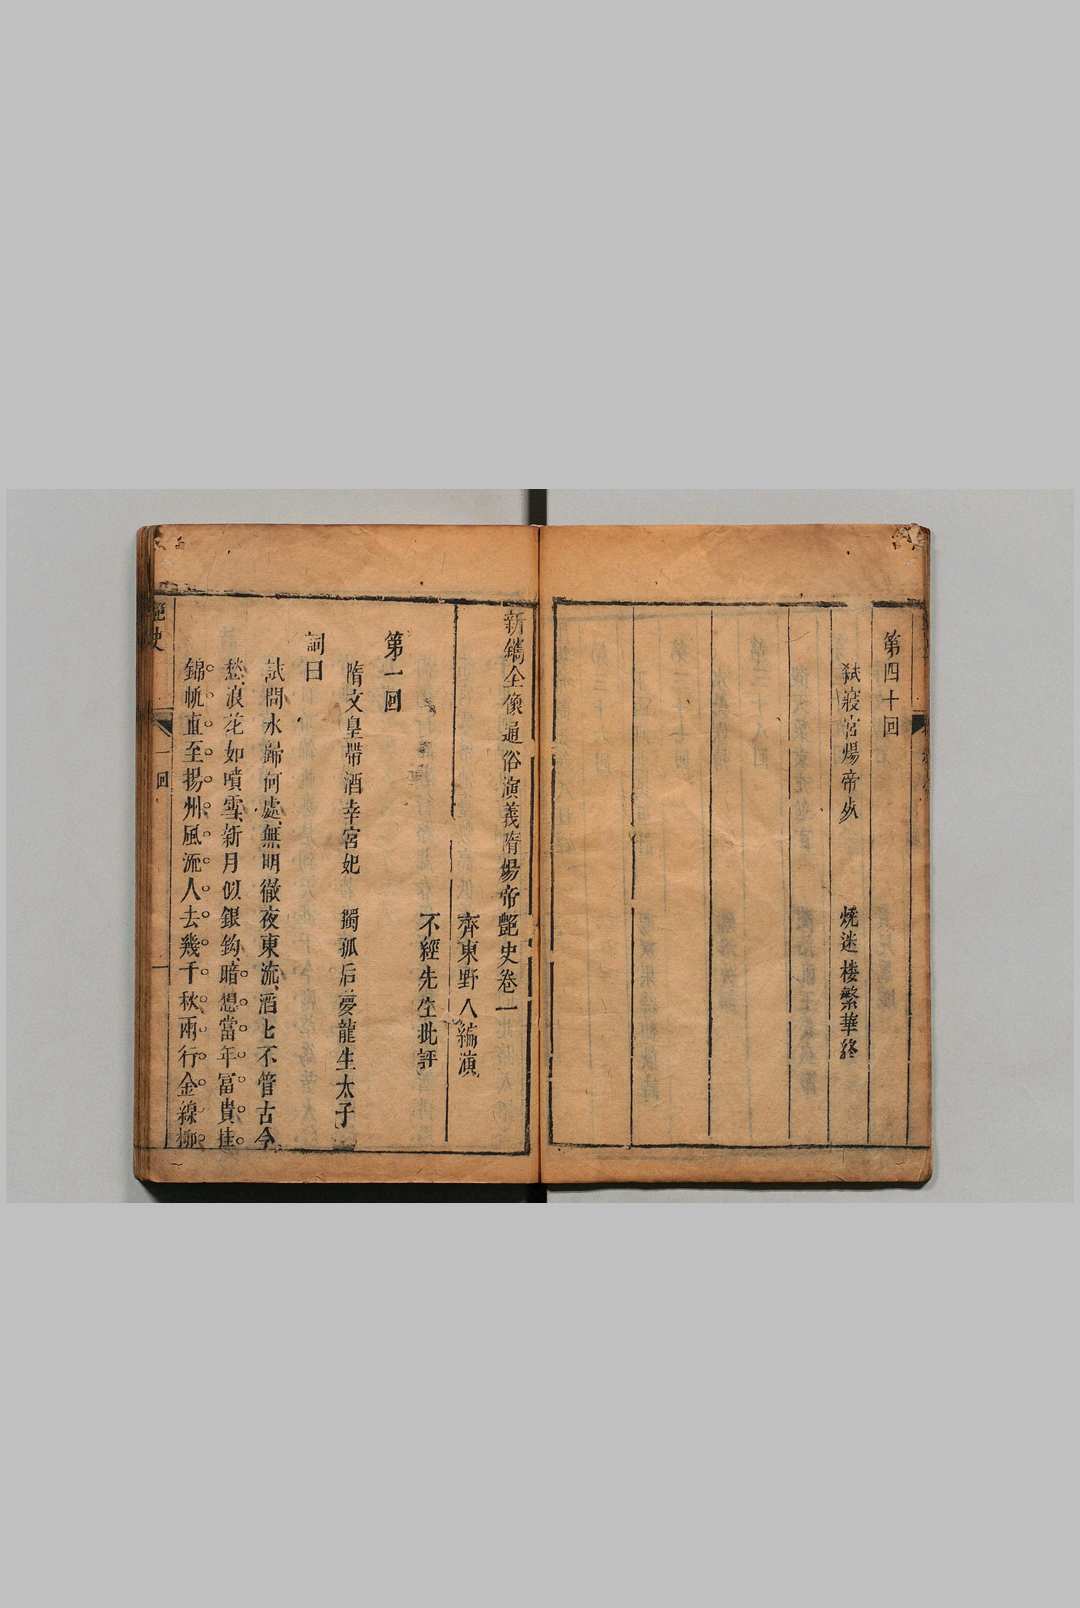 第四十回
弑寢宮煬帝死 燒迷樓繁華終
新鐫全像通俗演義隋煬帝艷史卷一
齊東野人編演
不經先生批評
第一回
隋文皇帶酒幸宮妃 獨孤后夢龍生太子
詞曰
試問水歸何處無明徹夜東流滔七不管古今
愁浪花如噴雪新月似銀鈎暗想當年富貴掛
錦帆直至揚州風流人去幾千秋兩行金線柳
艷史
一回